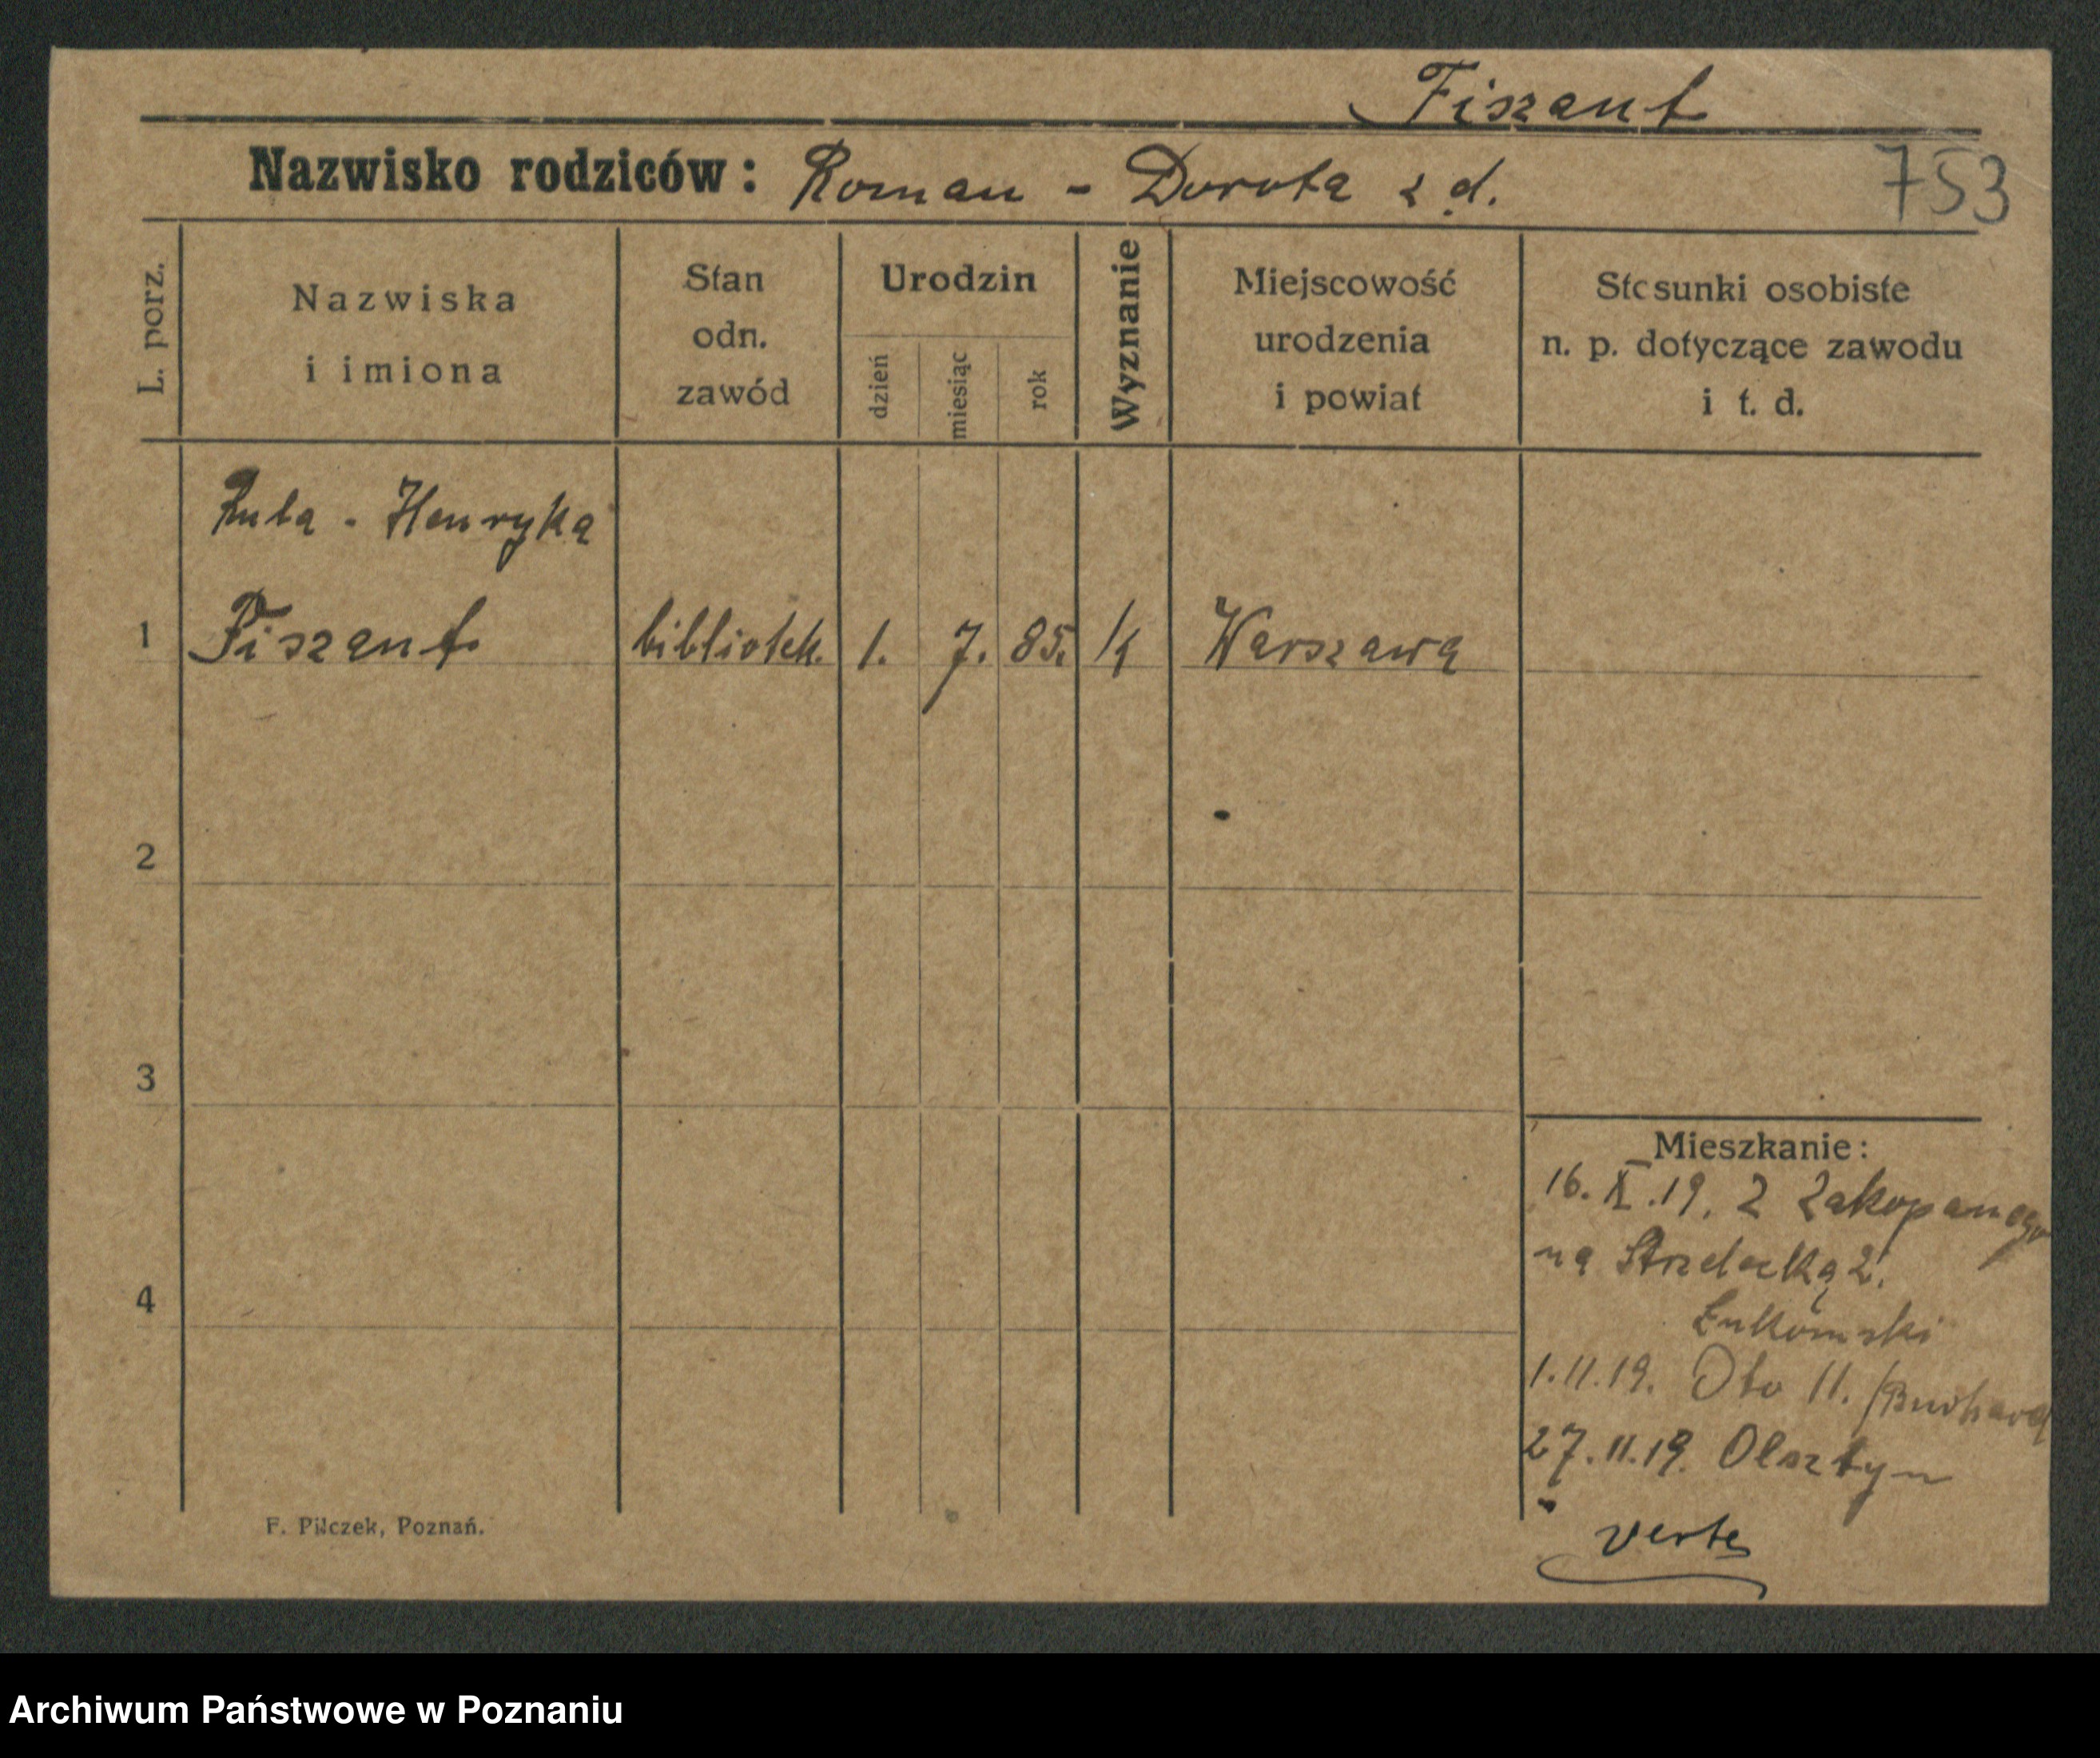 Fiszant
Nazwisko rodziców: Roman - Dorota z d.
753
L. porz.
Nazwiska
i imiona
Stan
odn.
zawód
Urodzin
dzień
miesiąc
rok
Wyznanie
Miejscowość
urodzenia
i powiat
Stosunki osobiste
n. p. dotyczące zawodu
i t. d.
- Henryka
1 Fiszant bibliotek. 1. 7. 85. Warszawa
2
3
4
Mieszkanie:
16. X. 19. Z Zakopanego
na Strzelecką 2.
Łukomski
1.11.19. 11.
27.11.19. Olsztyn
verte
F. Pilczek, Poznań.
Archiwum Państwowe w Poznaniu